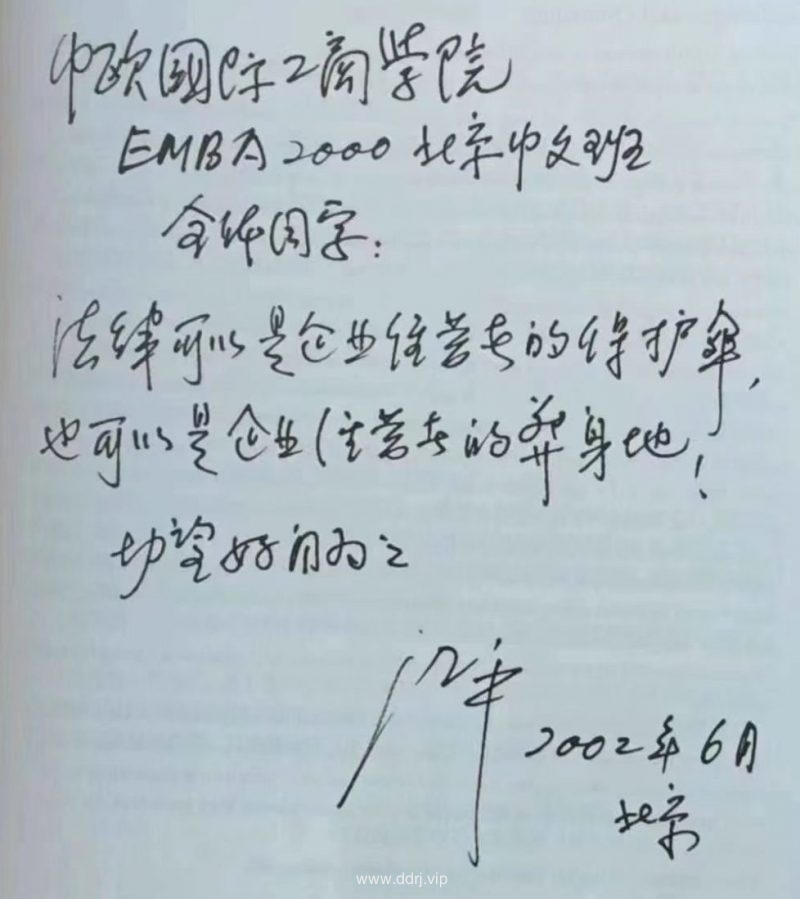 中欧國际工商学院
EMBA 2000 北京中文班
全体同学：
法律可以是企业经营者的保护伞，
也可以是企业经营者的葬身地！
切望好自为之
2002年6月
北京
www.ddrj.vip